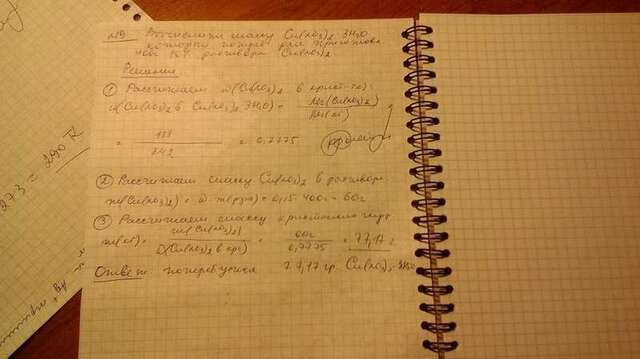 №3 Рассчитать массу Cu(NO₃)₂ · 3H₂O
которая потреб. для приготовл.
р-ра Cu(NO₃)₂.
Решение
① Рассчитаем ω(Cu(NO₃)₂ в
ω(Cu(NO₃)₂ в Cu(NO₃)₂ 3H₂O) = Mr(Cu(NO₃)₂) / Mr(кг)
= 188 / 242 = 0,7775
② Рассчитаем массу Cu(NO₃)₂ в растворе
m(Cu(NO₃)₂) = ω · m(р-ра) = 0,15 · 400г = 60г
③ Рассчитаем массу кристаллогидр.
m(кг) = m(Cu(NO₃)₂) / ω(Cu(NO₃)₂ в крг) = 60г / 0,7775 = 77,17 г
Ответ: потребуется 77,17 гр. Cu(NO₃)₂ · 3H₂O
273 = 290 K